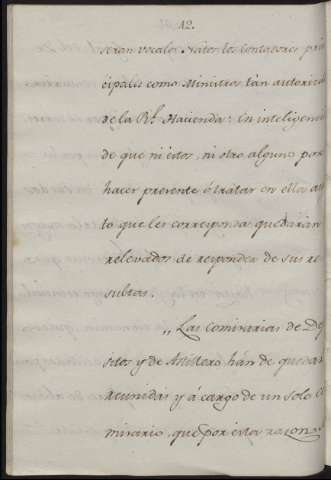 12.
seran vocales Natos los Contadores prin
cipales como Ministros tan autoriza
de la Rl. Hacienda: En inteligenci
de que ni estos, ni otro alguno por
hacer presente ó tratar en ella as
to que les corresponda quedarán
relevados de responder de sus re
sultas.
,, Las Comisarias de De
sitos y de Astillero hán de quedar
reunidas y á cargo de un solo Co
misario, que por esta razon